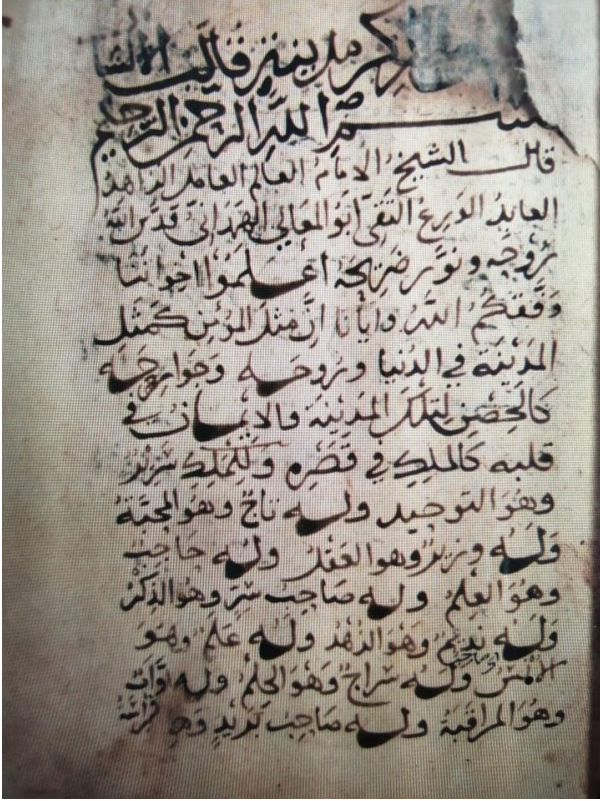 ذكر مدينة قالب الانسان
بسم الله الرحمن الرحيم
قال الشيخ الامام العالم العامل الزاهد
العابد الورع التقي ابو المعالي الهمداني قدس الله
روحه ونور ضريحه اعلموا اخواننا
وفقكم الله وايانا ان مثل المؤمن كمثل
المدينة في الدنيا وروحه وجوارحه
كالحصن لتلك المدينة والايمان في
قلبه كالملك في قصره وللملك سرير
وهو التوحيد وله تاج وهو المحبة
وله وزير وهو العقل وله حاجب
وهو العلم وله صاحب سر وهو الذكر
وله نديم وهو الزهد وله علم وهو
وله سراج وهو الحلم وله
وهو المراقبة وله صاحب بريد وهو